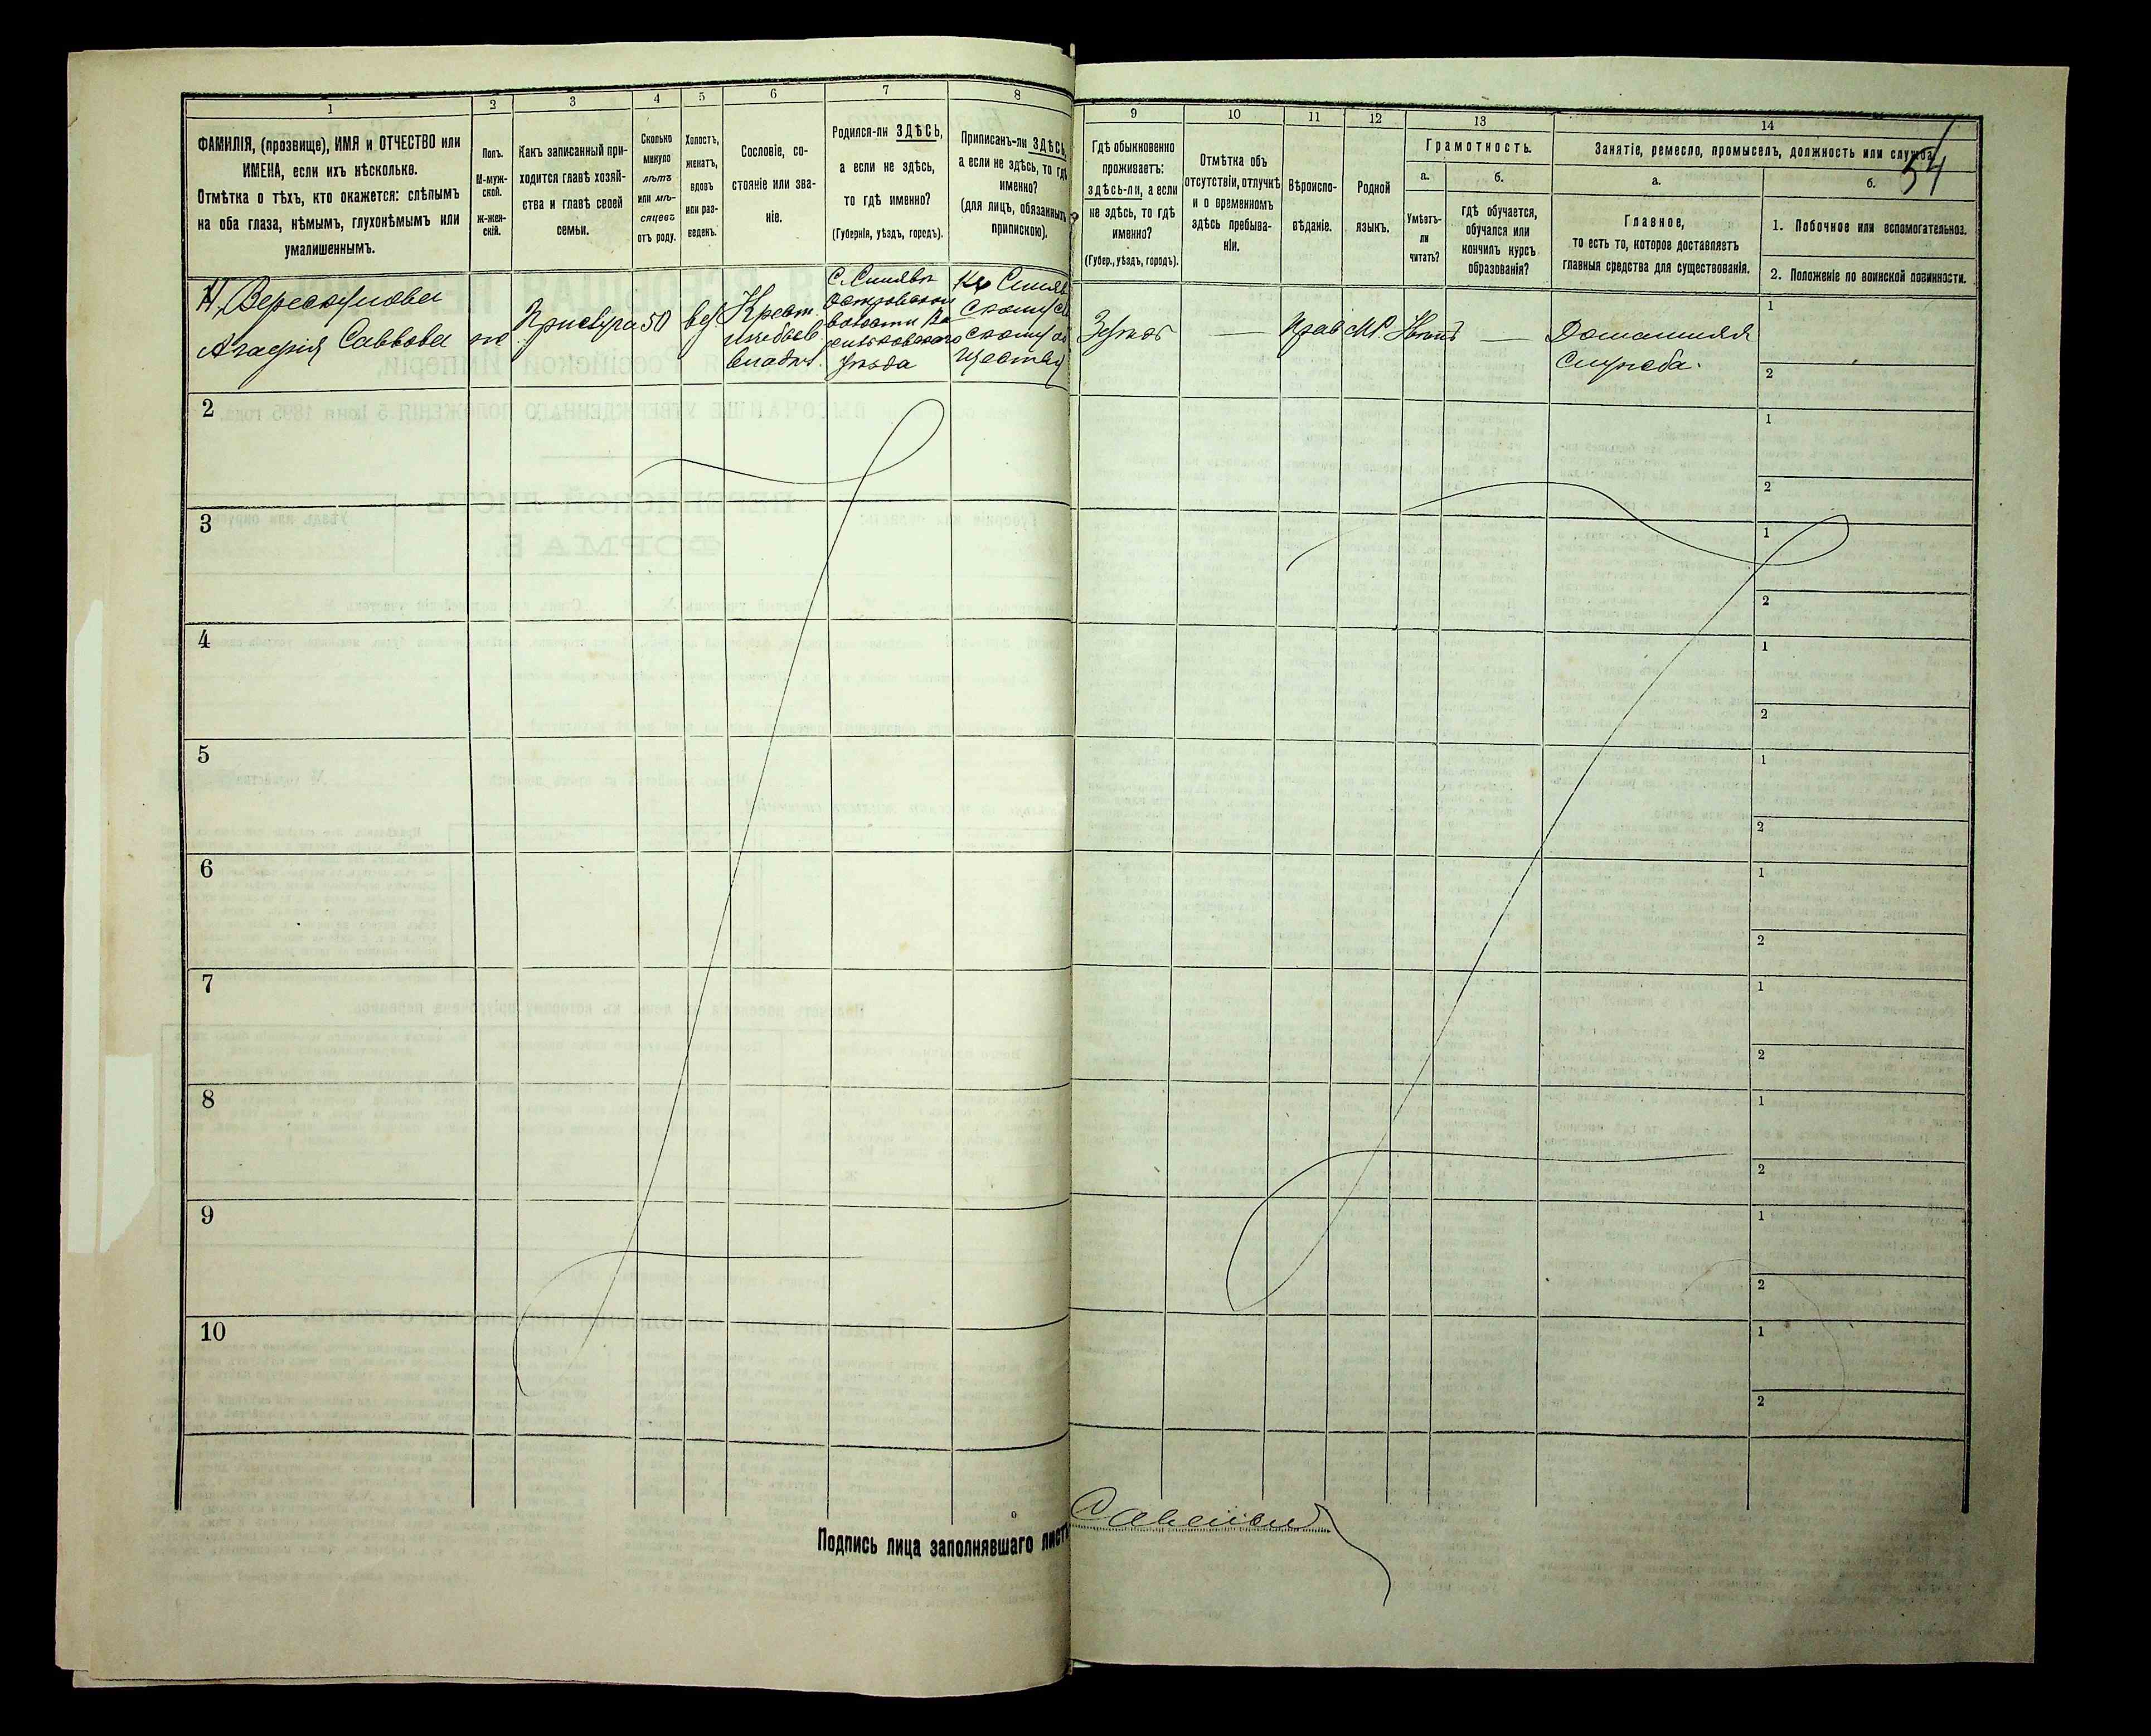 1
2
3
4
5
6
7
8
ФАМИЛІЯ, (прозвище), ИМЯ и ОТЧЕСТВО или
ИМЕНА, если ихъ нѣсколько.
Отмѣтка о тѣхъ, кто окажется: слѣпымъ
на оба глаза, нѣмымъ, глухонѣмымъ или
умалишеннымъ.
Полъ.
М-муж-
ской.
ж-жен-
скій.
Какъ записанный при-
ходится главѣ хозяй-
ства и главѣ своей
семьи.
Сколько
минуло
лѣтъ
или мѣ-
сяцевъ
отъ роду.
Холостъ,
женатъ,
вдовъ
или раз-
веденъ.
Сословіе, со-
стояніе или зва-
ніе.
Родился-ли ЗДѢСЬ,
а если не здѣсь,
то гдѣ именно?
(Губернія, уѣздъ, городъ).
Приписанъ-ли ЗДѢСЬ,
а если не здѣсь, то гдѣ
именно?
(для лицъ, обязанныхъ
припискою).
9
10
11
12
13
14
Гдѣ обыкновенно
проживаетъ:
здѣсь-ли, а если
не здѣсь, то гдѣ
именно?
(Губер., уѣздъ, городъ).
Отмѣтка объ
отсутствіи, отлучкѣ
и о временномъ
здѣсь пребыва-
ніи.
Вѣроиспо-
вѣданіе.
Родной
языкъ.
Грамотность.
а.
б.
Умѣетъ-
ли
читать?
гдѣ обучается,
обучался или
кончилъ курсъ
образованія?
Занятіе, ремесло, промыселъ, должность или служба.
54
а.
б.
Главное,
то есть то, которое доставляетъ
главныя средства для существованія.
1. Побочное или вспомогательное.
2. Положеніе по воинской повинности.
Агафія Саввова
50
вд
Крест.
владѣл.
уѣзда
Прав
М.Р.
Домашняя
служба.
1
2
2
1
2
3
1
2
4
1
2
5
1
2
6
1
2
7
1
2
8
1
2
9
1
2
10
1
2
Подпись лица заполнявшаго листъ